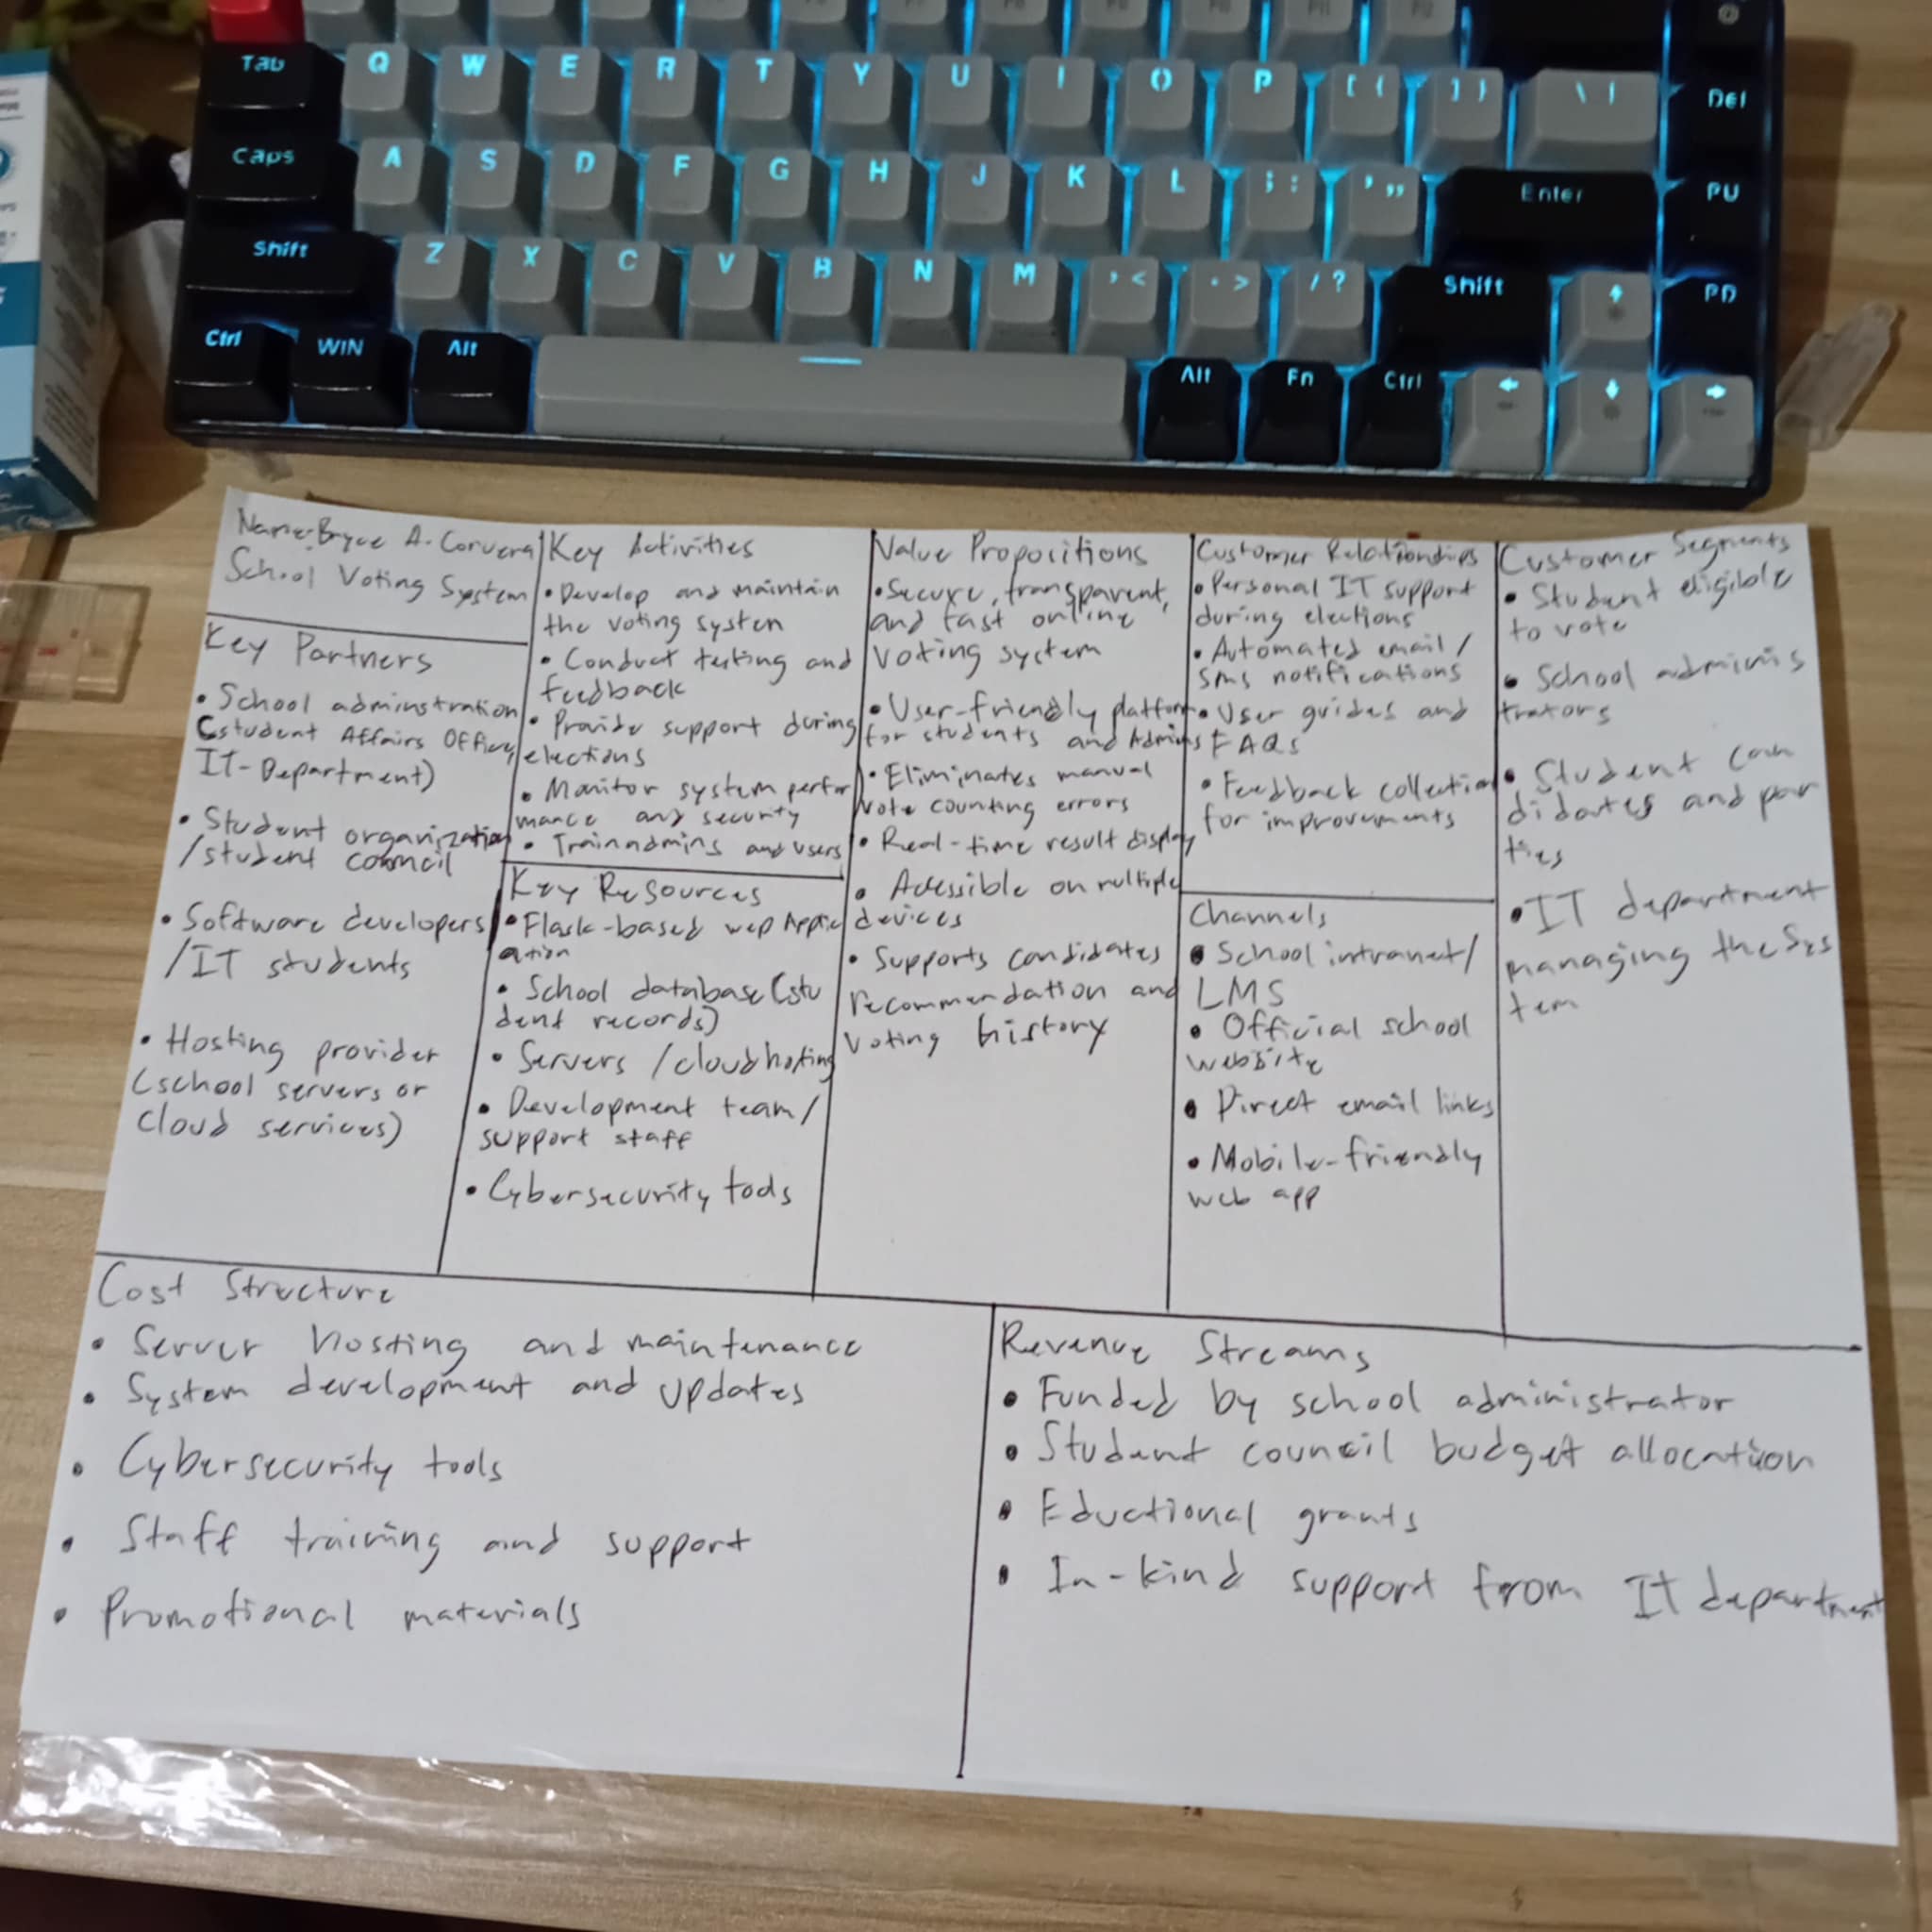 Tab Q W E R T Y U I O P [ { ] } \ | Del
Caps A S D F G H J K L ; : ' " Enter PU
Shift Z X C V B N M , < . > / ? Shift PD
Ctrl WIN Alt Alt Fn Ctrl
Name: Bryce A. Corvera
School Voting System
Key Partners
• School adminstration
(student Affairs Office,
IT-Department)
• Student organization
/student council
• Software developers
/IT students
• Hosting provider
(school servers or
cloud services)
Key Activities
• Develop and maintain
the voting system
• Conduct testing and
feedback
• Provide support during
elections
• Monitor system perfor
mance and security
• Train admins and users
Key Resources
• Flask-based web Applic
ation
• School database (stu
dent records)
• Servers /cloud hosting
• Development team/
support staff
• Cybersecurity tools
Value Propositions
• Secure, transparent,
and fast online
voting system
• User-friendly platform
for students and Admins
• Eliminates manual
vote counting errors
• Real-time result display
• Acessible on multiple
devices
• Supports candidates
recommendation and
voting history
Customer Relationships
• Personal IT support
during elections
• Automated email /
sms notifications
• User guides and
FAQs
• Feedback collection
for improvements
Channels
• School intranet/
LMS
• Official school
website
• Direct email links
• Mobile-friendly
web app
Customer Segments
• Student eligible
to vote
• School adminis
trators
• Student can
didates and par
ties
• IT department
managing the Sys
tem
Cost Structure
• Server hosting and maintenance
• System development and updates
• Cybersecurity tools
• Staff training and support
• Promotional materials
Revenue Streams
• Funded by school administrator
• Student council budget allocation
• Eductional grants
• In-kind support from IT department